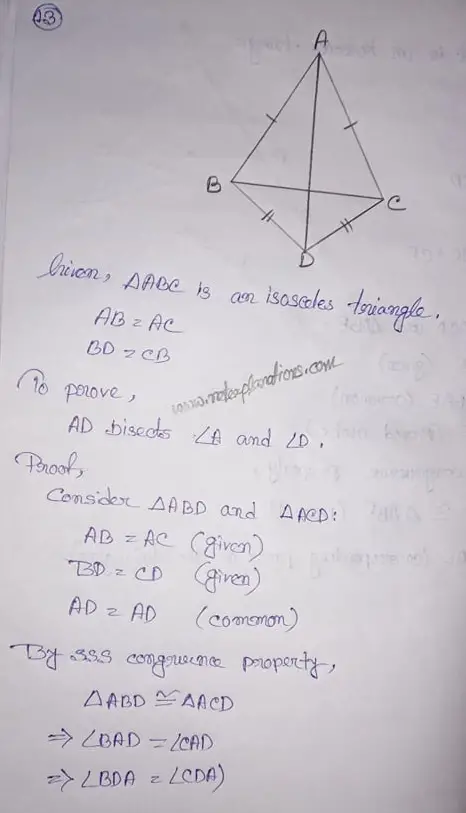 23
A
B
C
D
Given, △ABC is an isosceles triangle.
AB = AC
BD = CB
www.netexplanations.com
To prove,
AD bisects ∠A and ∠D.
Proof,
Consider △ABD and △ACD:
AB = AC (given)
BD = CD (given)
AD = AD (common)
By SSS congruence property,
△ABD ≅ △ACD
⇒ ∠BAD = ∠CAD
⇒ ∠BDA = ∠CDA)